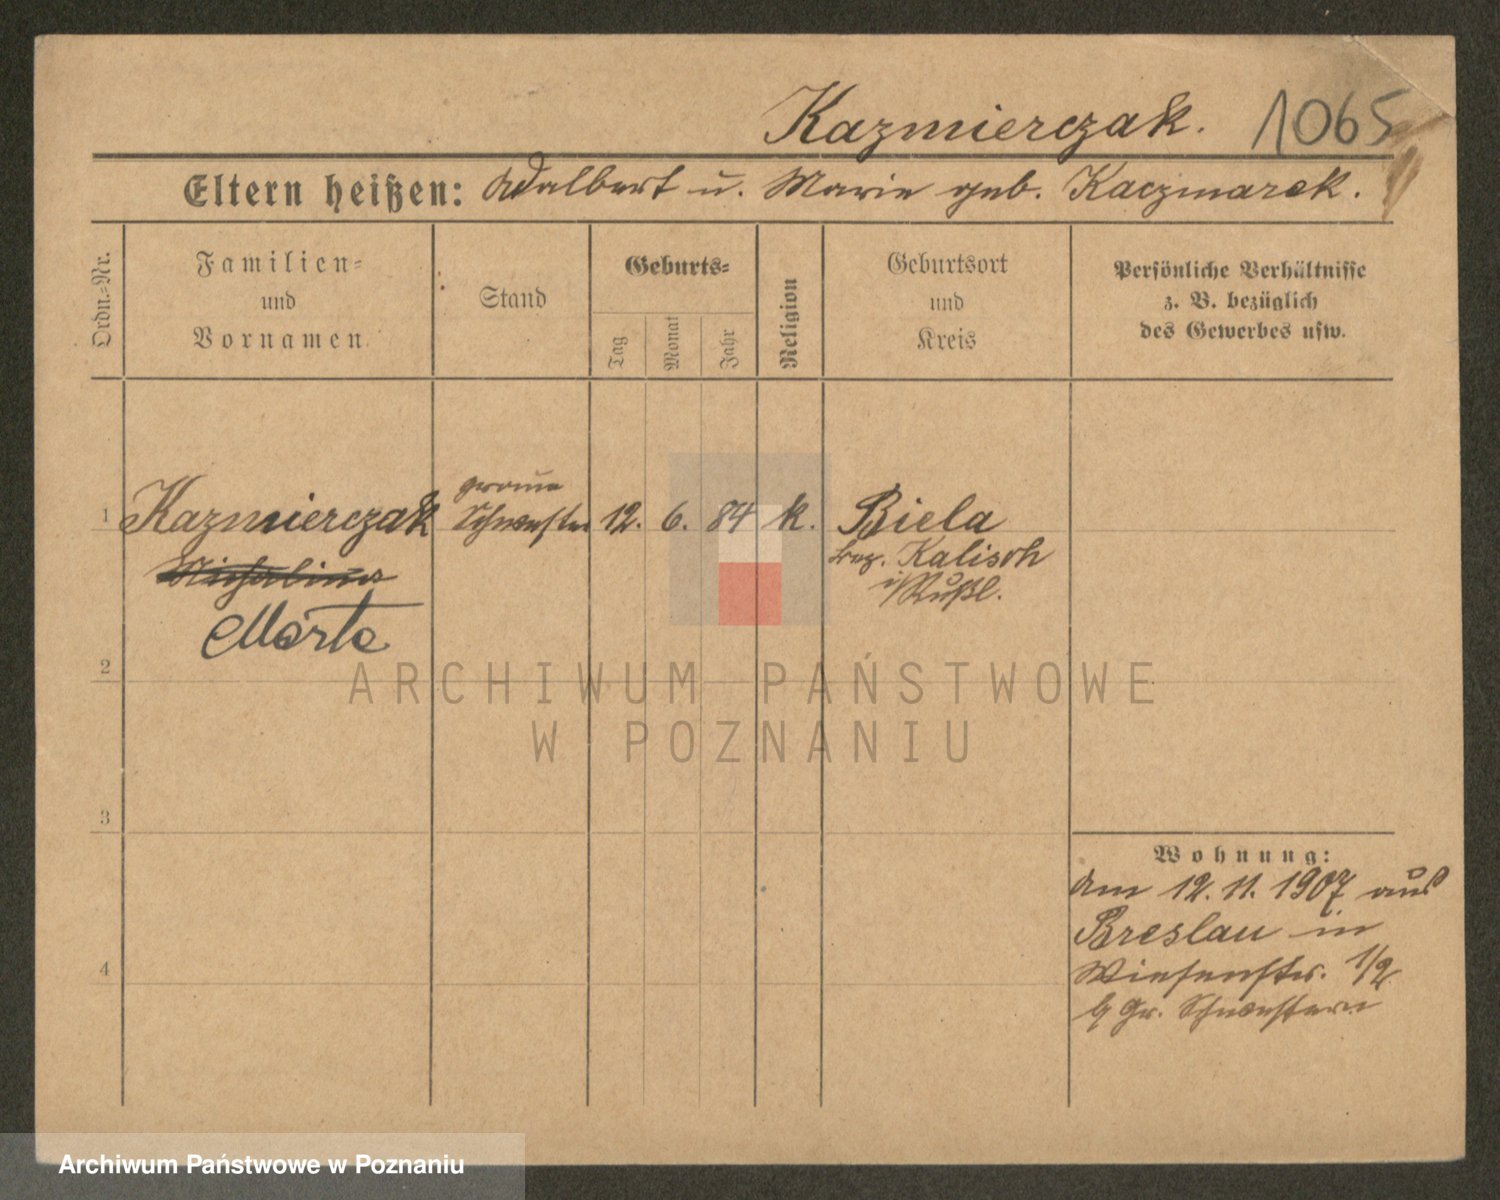 Kazmierczak. 1065
Eltern heißen: Adalbert u. Marie geb. Kaczmarek.
Ordn.-Nr.
Familien-
und
Vornamen.
Stand
Geburts-
Tag
Monat
Jahr
Religion
Geburtsort
und
Kreis
Persönliche Verhältnisse
z. B. bezüglich
des Gewerbes usw.
1 Kazmierczak graue Schwester 12. 6. 84 k. Biela
bez. Kalisch
i/Rußl.
Michalina
Marta
2
ARCHIWUM PAŃSTWOWE
W POZNANIU
3
Wohnung:
Am 12.11.1907 aus
Breslau in
Wiesenstr. 1/2
4
b/ Gr. Schwestern
Archiwum Państwowe w Poznaniu